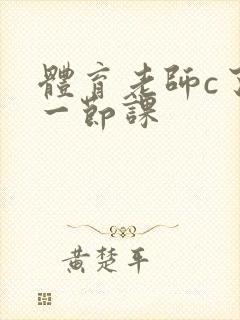 體育老師c了
一節課
黄楚平